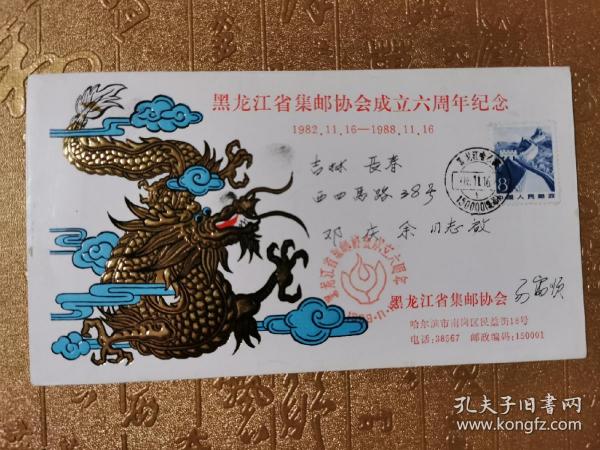 黑龙江省集邮协会成立六周年纪念
1982.11.16—1988.11.16
吉林 长春
西四马路38号
邓庆余 同志 启
8
中国人民邮政
11.16
150000
黑龙江省集邮协会成立六周年
黑龙江省集邮协会
哈尔滨市南岗区民益街18号
电话:38567 邮政编码:150001
孔夫子旧书网
www.kongfz.com